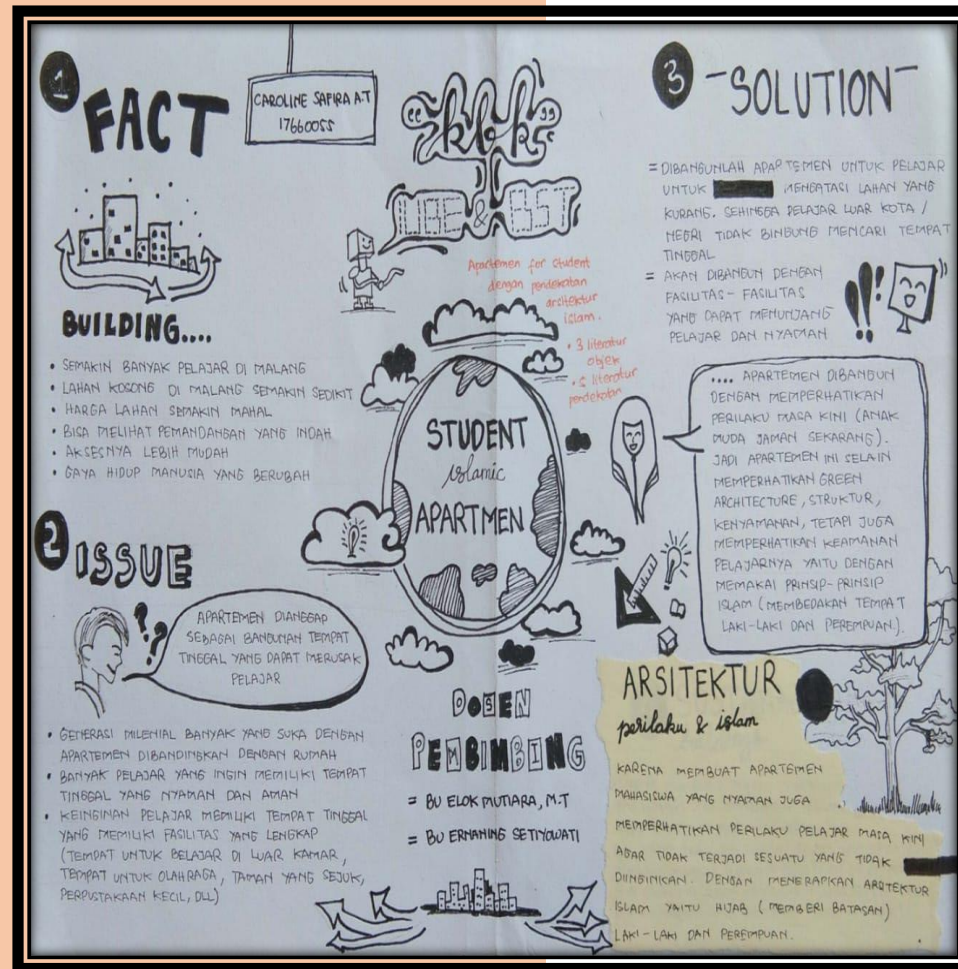 1 FACT
CAROLINE SAFIRA A.T
17660055
BUILDING....
• SEMAKIN BANYAK PELAJAR DI MALANG
• LAHAN KOSONG DI MALANG SEMAKIN SEDIKIT
• HARGA LAHAN SEMAKIN MAHAL
• BISA MELIHAT PEMANDANGAN YANG INDAH
• AKSESNYA LEBIH MUDAH
• GAYA HIDUP MANUSIA YANG BERUBAH
2 ISSUE
APARTEMEN DIANGGAP
SEBAGAI BANGUNAN TEMPAT
TINGGAL YANG DAPAT MERUSAK
PELAJAR
• GENERASI MILENIAL BANYAK YANG SUKA DENGAN
APARTEMEN DIBANDINGKAN DENGAN RUMAH
• BANYAK PELAJAR YANG INGIN MEMILIKI TEMPAT
TINGGAL YANG NYAMAN DAN AMAN
• KEINGINAN PELAJAR MEMILIKI TEMPAT TINGGAL
YANG MEMILIKI FASILITAS YANG LENGKAP
(TEMPAT UNTUK BELAJAR DI LUAR KAMAR,
TEMPAT UNTUK OLAHRAGA, TAMAN YANG SEJUK,
PERPUSTAKAAN KECIL, DLL)
"kbk"
& BST
Apartemen for student
dengan pendekatan
arsitektur
islam.
• 3 literatur
objek
literatur
pendekatan
STUDENT
islamic
APARTMEN
DOSEN
PEMBIMBING
= BU ELOK MUTIARA, M.T
= BU ERNANING SETIYOWATI
3 -SOLUTION-
= DIBANGUNLAH APARTEMEN UNTUK PELAJAR
UNTUK MENGATASI LAHAN YANG
KURANG. SEHINGGA PELAJAR LUAR KOTA /
NEGRI TIDAK BINGUNG MENCARI TEMPAT
TINGGAL
= AKAN DIBANGUN DENGAN
FASILITAS-FASILITAS
YANG DAPAT MENUNJANG
PELAJAR DAN NYAMAN
!!
.... APARTEMEN DIBANGUN
DENGAN MEMPERHATIKAN
PERILAKU MASA KINI (ANAK
MUDA JAMAN SEKARANG).
JADI APARTEMEN INI SELAIN
MEMPERHATIKAN GREEN
ARCHITECTURE, STRUKTUR,
KENYAMANAN, TETAPI JUGA
MEMPERHATIKAN KEAMANAN
PELAJARNYA YAITU DENGAN
MEMAKAI PRINSIP-PRINSIP
ISLAM (MEMBEDAKAN TEMPAT
LAKI-LAKI DAN PEREMPUAN).
ARSITEKTUR
perilaku & islam
KARENA MEMBUAT APARTEMEN
MAHASISWA YANG NYAMAN JUGA
MEMPERHATIKAN PERILAKU PELAJAR MASA KINI
AGAR TIDAK TERJADI SESUATU YANG TIDAK
DIINGINKAN. DENGAN MENERAPKAN ARSTEKTUR
ISLAM YAITU HIJAB (MEMBERI BATASAN)
LAKI-LAKI DAN PEREMPUAN.